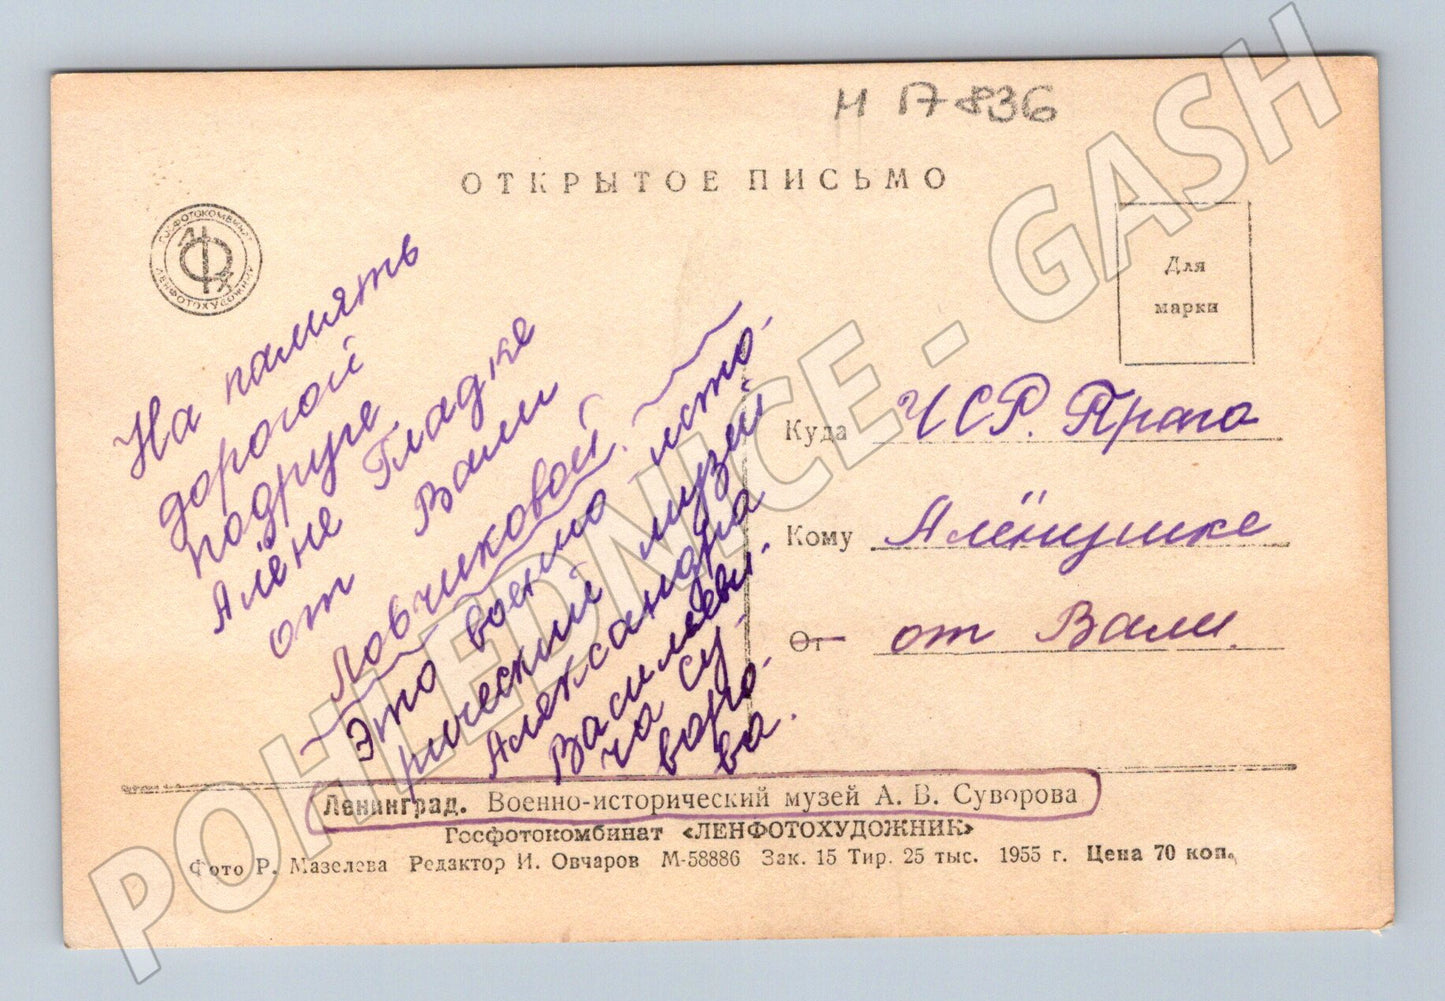 н 17 836
ОТКРЫТОЕ ПИСЬМО
ГОСФОТОКОМБИНАТ
ЛЕНФОТОХУДОЖНИК
Для
марки
На память
дорогой
подруге
Алёне Гладке
от Вали
Ловчиковой.
Это военно-исто-
рический музей
Александра
Васильеви-
ча Су-
воро-
ва.
Куда ЧСР. Прага
Кому Алёнушке
От от Вали.
Ленинград. Военно-исторический музей А. В. Суворова
Госфотокомбинат «ЛЕНФОТОХУДОЖНИК»
Фото Р. Мазелева Редактор И. Овчаров М-58886 Зак. 15 Тир. 25 тыс. 1955 г. Цена 70 коп.
POHLEDNICE - GASH